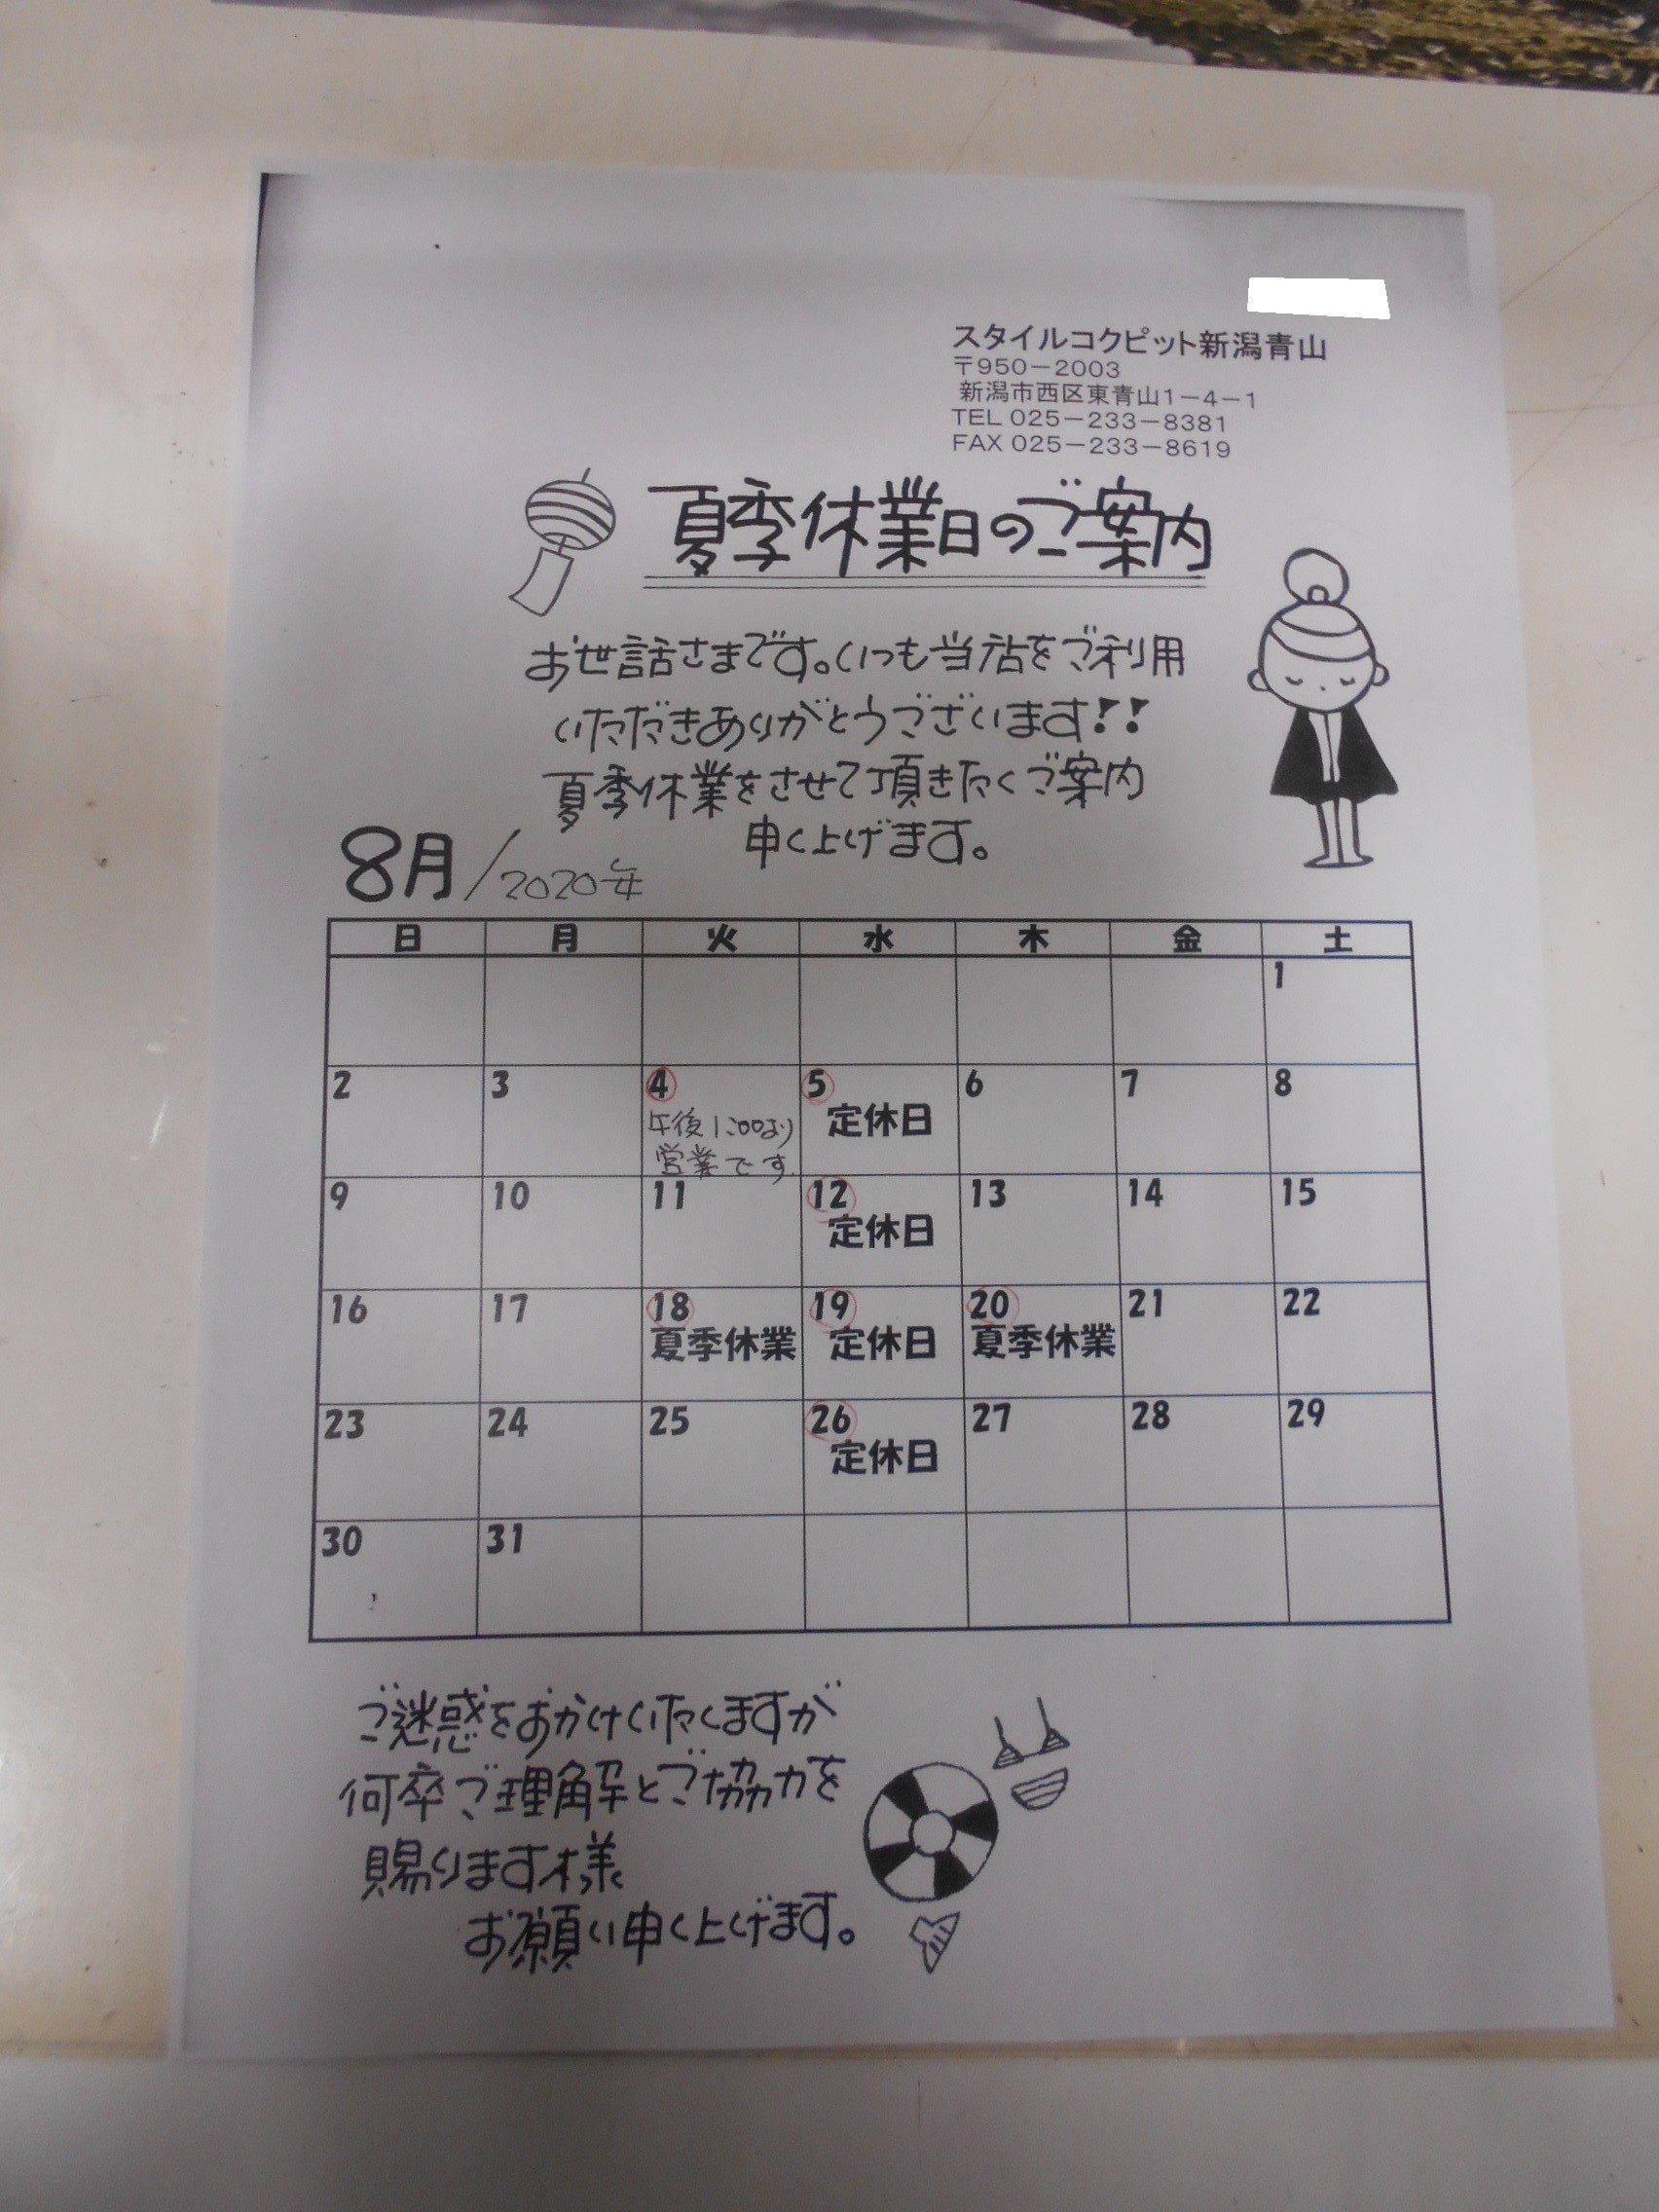 スタイルコクピット新潟青山
〒950-2003
新潟市西区東青山1-4-1
TEL 025-233-8381
FAX 025-233-8619
夏季休業日のご案内
お世話さまです。いつも当店をご利用
いただきありがとうございます!!
夏季休業をさせて頂きたくご案内
申し上げます。
8月/2020年
日 月 火 水 木 金 土
1
2 3 4 5 6 7 8
午後1:00より
営業です
定休日
9 10 11 12 13 14 15
定休日
16 17 18 19 20 21 22
夏季休業 定休日 夏季休業
23 24 25 26 27 28 29
定休日
30 31
ご迷惑をおかけいたしますが
何卒ご理解とご協力を
賜ります様
お願い申し上げます。